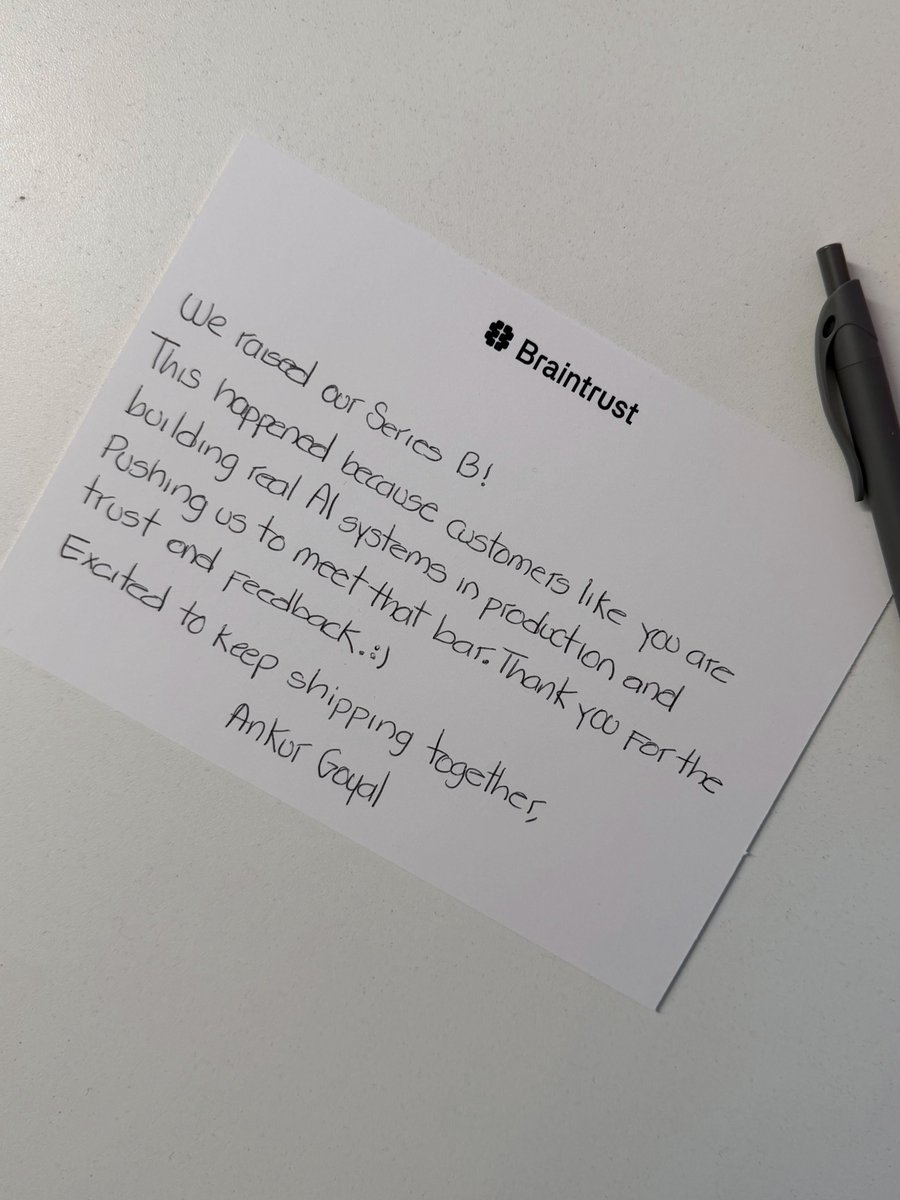 Braintrust
We raised our Series B!
This happened because customers like you are
building real AI systems in production and
Pushing us to meet that bar. Thank you For the
trust and Feedback. :)
Excited to keep shipping together,
Ankur Goyal